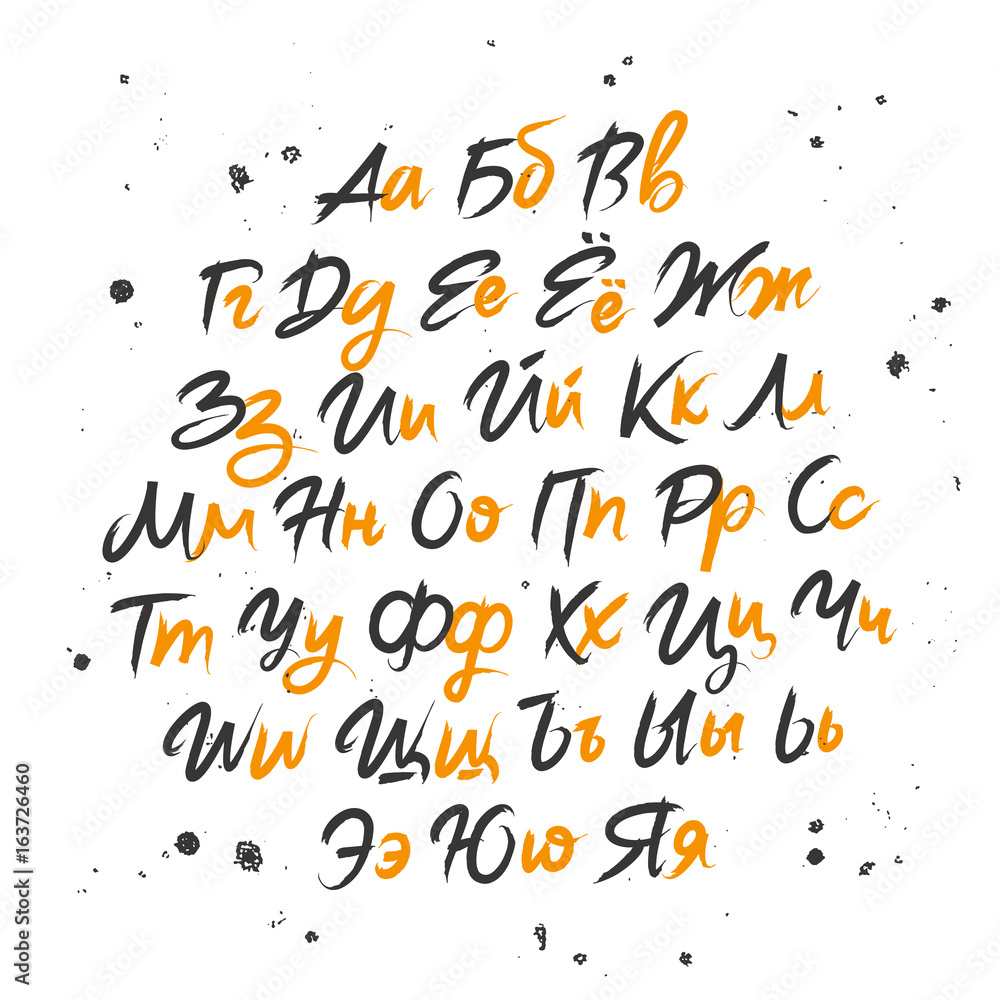 Аа Бб Вв
Гг Дд Ее Ёё Жж
Зз Ии Йй Кк Лл
Мм Нн Оо Пп Рр Сс
Тт Уу Фф Хх Цц Чч
Шш Щщ Ъъ Ыы Ьь
Ээ Юю Яя
Adobe Stock | #163726460